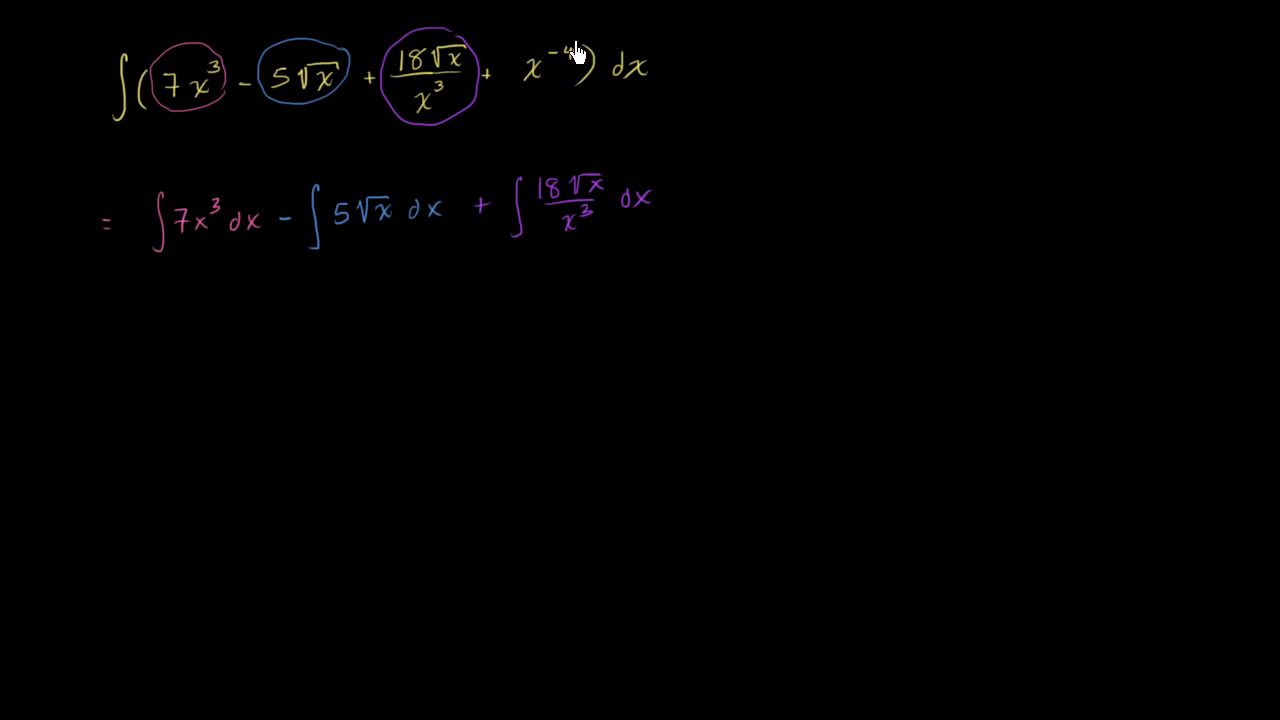 ∫(7x³ - 5√x + 18√x/x³ + x⁻⁴) dx
= ∫7x³ dx - ∫5√x dx + ∫18√x/x³ dx